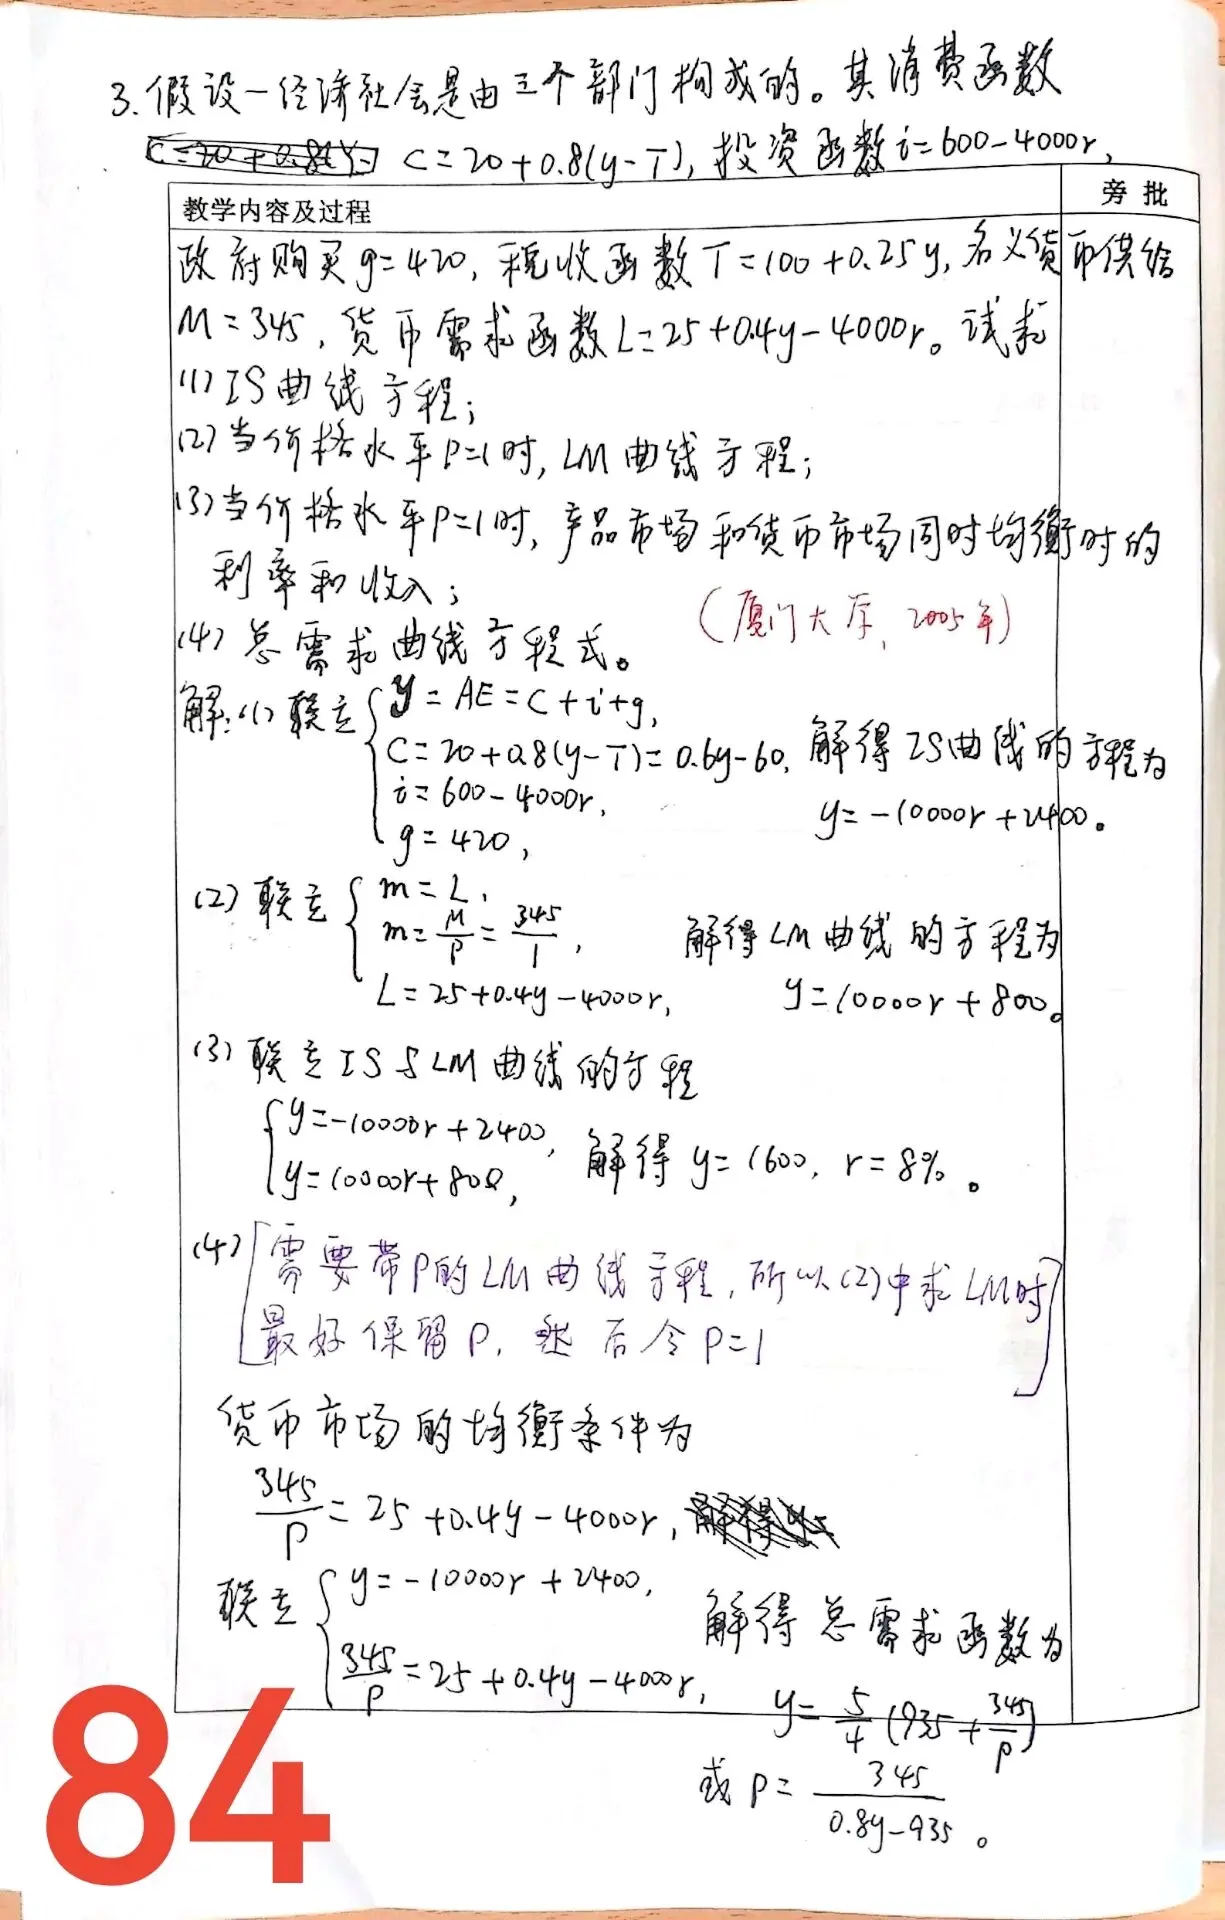 3.假设一经济社会是由三个部门构成的。其消费函数
C=20+0.8(y-T),投资函数i=600-4000r,
教学内容及过程 旁 批
政府购买g=420,税收函数T=100+0.25y,名义货币供给
M=345,货币需求函数L=25+0.4y-4000r。试求
(1)IS曲线方程;
(2)当价格水平P=1时,LM曲线方程;
(3)当价格水平P=1时,产品市场和货币市场同时均衡时的
利率和收入;
(厦门大学,2005年)
(4)总需求曲线方程式。
解:(1)联立
y=AE=C+i+g,
C=20+0.8(y-T)=0.6y-60,
i=600-4000r,
g=420,
解得IS曲线的方程为
y=-10000r+2400。
(2)联立
m=L,
m=M/P=345/1,
L=25+0.4y-4000r,
解得LM曲线的方程为
y=10000r+800。
(3)联立IS与LM曲线的方程
y=-10000r+2400,
y=10000r+800,
解得y=1600,r=8%。
(4)[需要带P的LM曲线方程,所以(2)中求LM时
最好保留P,然后令P=1]
货币市场的均衡条件为
345/P=25+0.4y-4000r,
联立
y=-10000r+2400,
345/P=25+0.4y-4000r,
解得总需求函数为
y=5/4(935+345/P)
或P=345/(0.8y-935)。
84